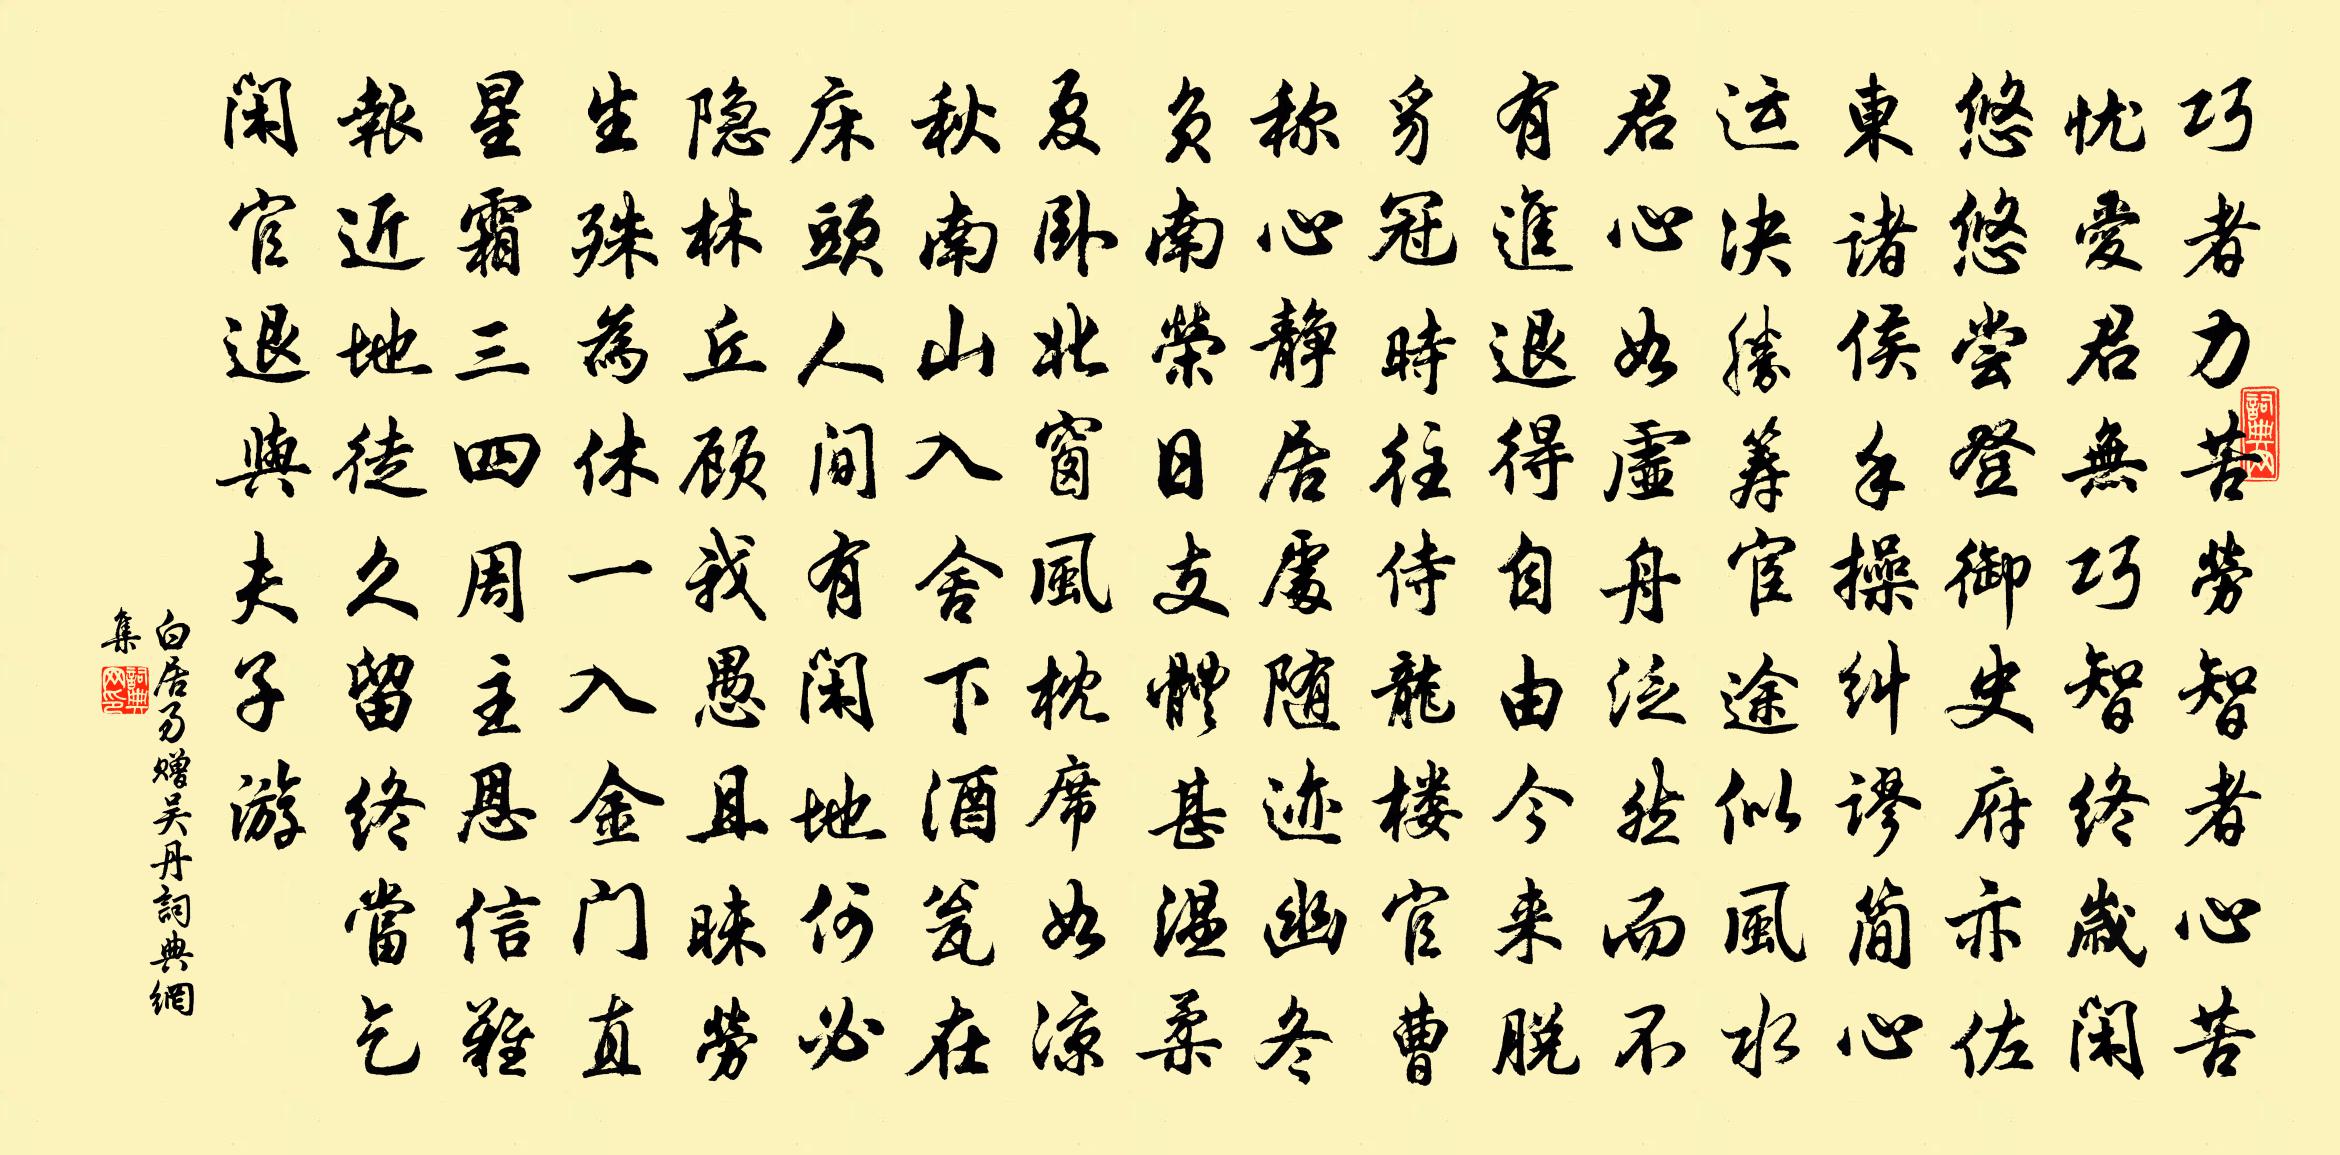 巧者力苦勞智者心苦
忧愛君無巧智終歲闲
悠悠尝登御史府亦佐
東诸侯手操糾謬简心
运决勝筹宦途似風水
君心如虛舟泛然而不
有進退得自由今来脱
豸冠時往侍龍楼官曹
称心静居處随迹幽冬
负南榮日支體甚温柔
夏卧北窗風枕席如凉
秋南山入舍下酒瓮在
床頭人间有闲地何必
隐林丘顾我愚且昧劳
生殊為休一入金门直
星霜三四周主恩信難
報近地徒久留終當乞
闲官退與夫子游
白居易赠吴丹詞典網
集
詞典网
詞典网印